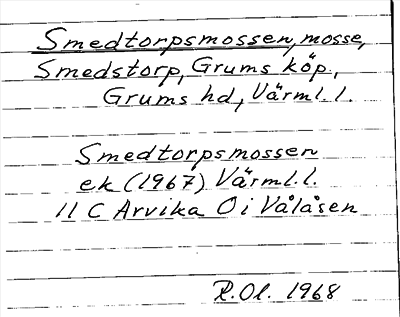 Smedtorpsmossen, mosse,
Smedstorp, Grums köp.,
Grums hd, Värml. l.
Smedtorpsmossen
ek (1967) Värml. l.
11 C Arvika O i Vålåsen
R.Ol. 1968